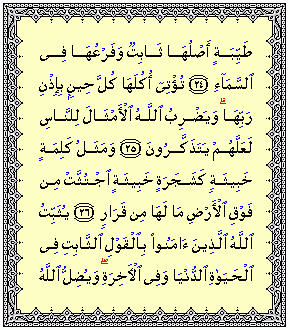 طَيِّبَةٍ أَصْلُهَا ثَابِتٌ وَفَرْعُهَا فِى
ٱلسَّمَآءِ ٢٤ تُؤْتِىٓ أُكُلَهَا كُلَّ حِينٍۭ بِإِذْنِ
رَبِّهَا ۗ وَيَضْرِبُ ٱللَّهُ ٱلْأَمْثَالَ لِلنَّاسِ
لَعَلَّهُمْ يَتَذَكَّرُونَ ٢٥ وَمَثَلُ كَلِمَةٍ
خَبِيثَةٍ كَشَجَرَةٍ خَبِيثَةٍ ٱجْتُثَّتْ مِن
فَوْقِ ٱلْأَرْضِ مَا لَهَا مِن قَرَارٍ ٢٦ يُثَبِّتُ
ٱللَّهُ ٱلَّذِينَ ءَامَنُوا۟ بِٱلْقَوْلِ ٱلثَّابِتِ فِى
ٱلْحَيَوٰةِ ٱلدُّنْيَا وَفِى ٱلْءَاخِرَةِ ۖ وَيُضِلُّ ٱللَّهُ